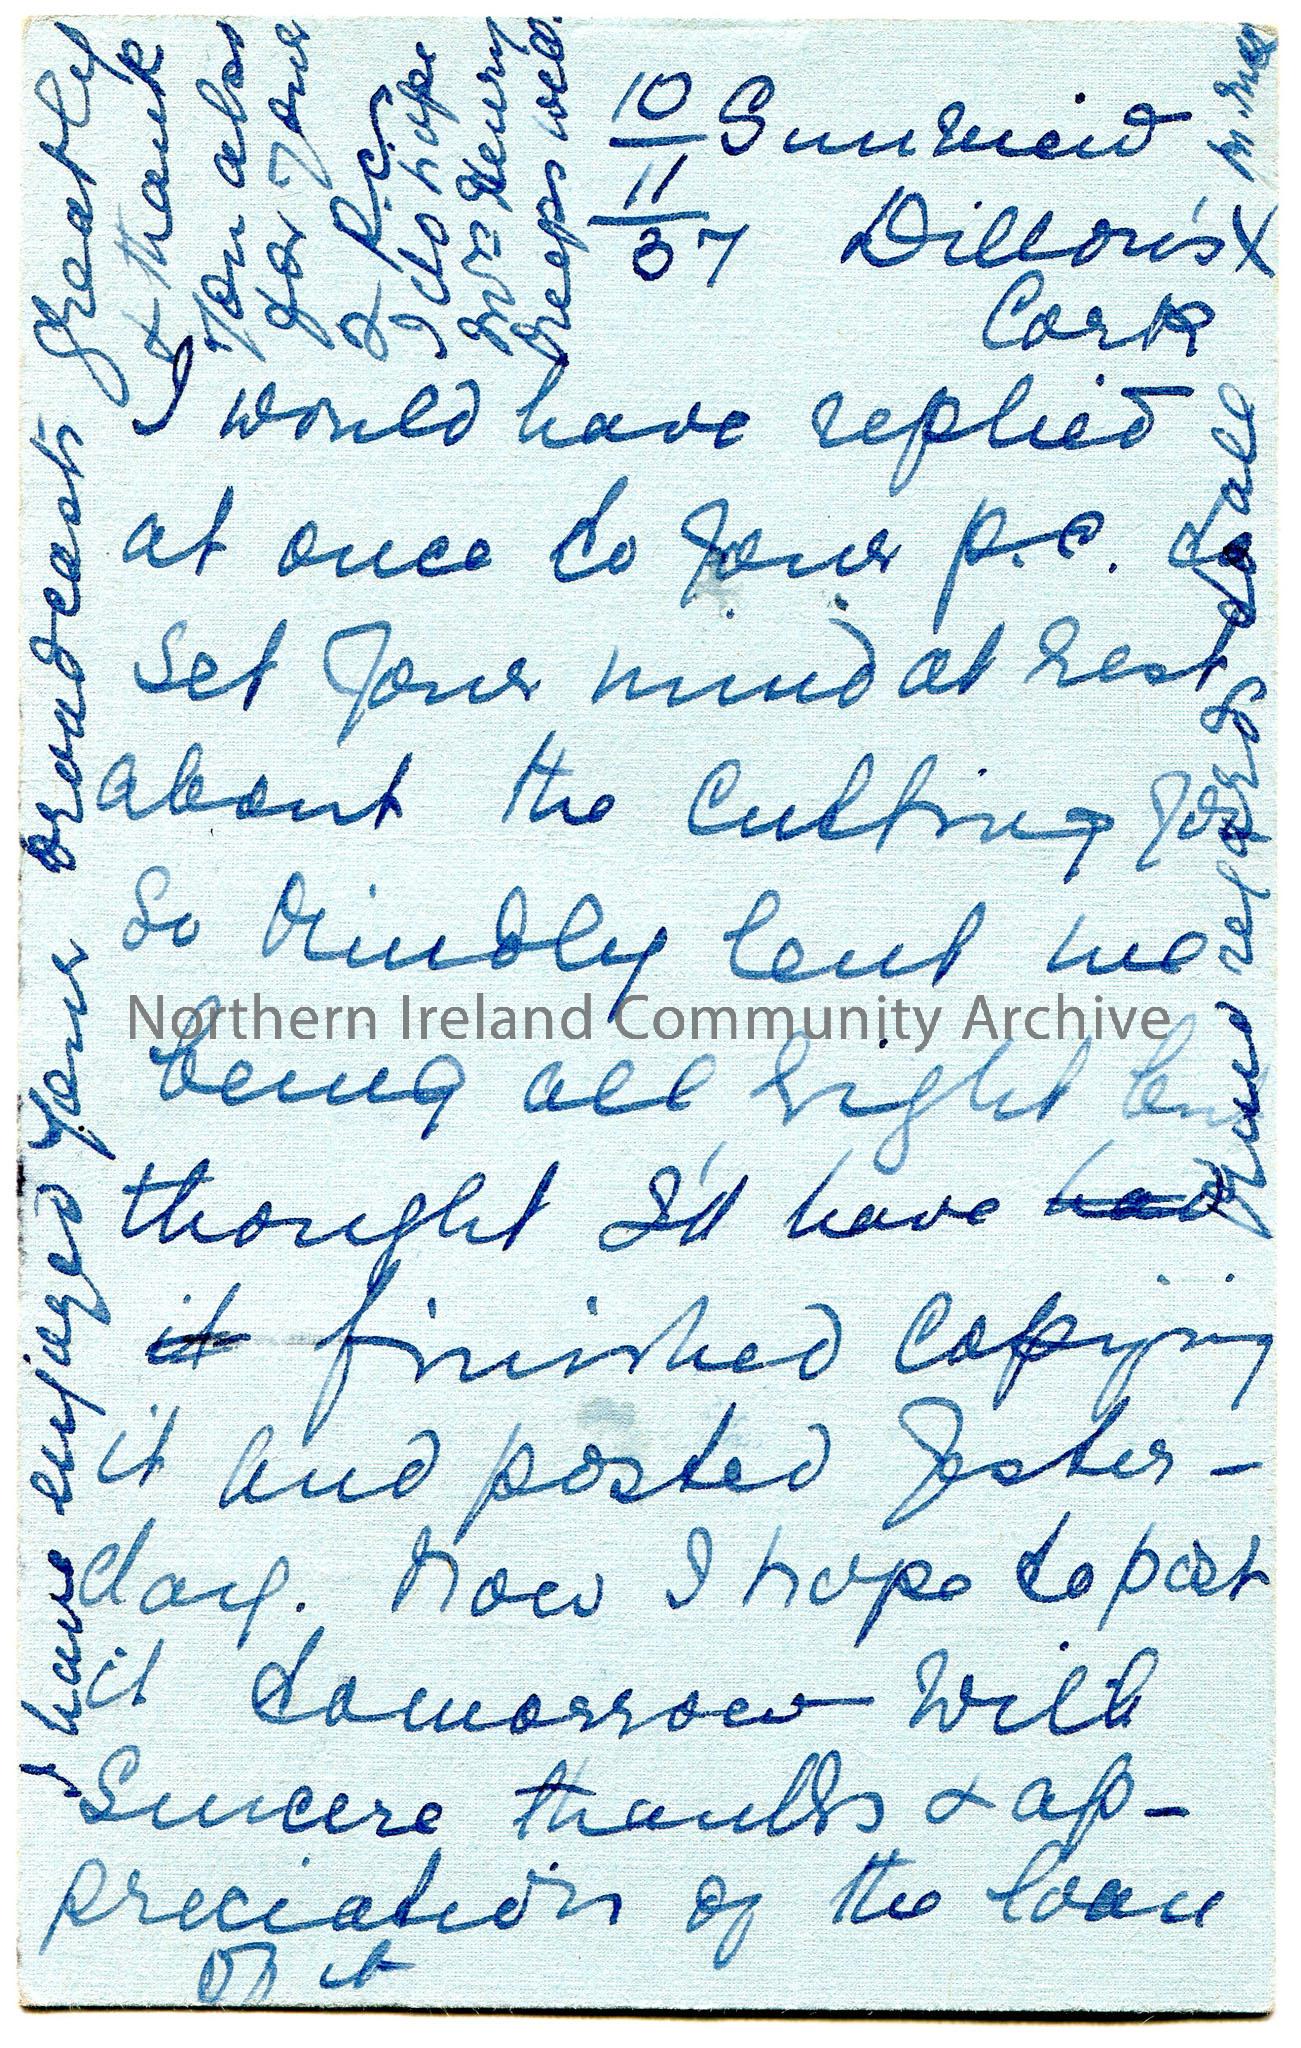 10
11
37
Sunview
Dillon's X
Cork
I would have replied
at once to your p.c. to
set your mind at rest
about the cutting you
so kindly lent me
being all right but
thought I'd have had
it finished copying
it and posted yester-
day. Now I hope to post
it tomorrow with
Sincere thanks & ap-
preciation of the loan
of it
I have enjoyed your broadcasts greatly
& thank
you also
for your
P.C.
I do hope
Mrs Henry
keeps well.
regards to all
Northern Ireland Community Archive